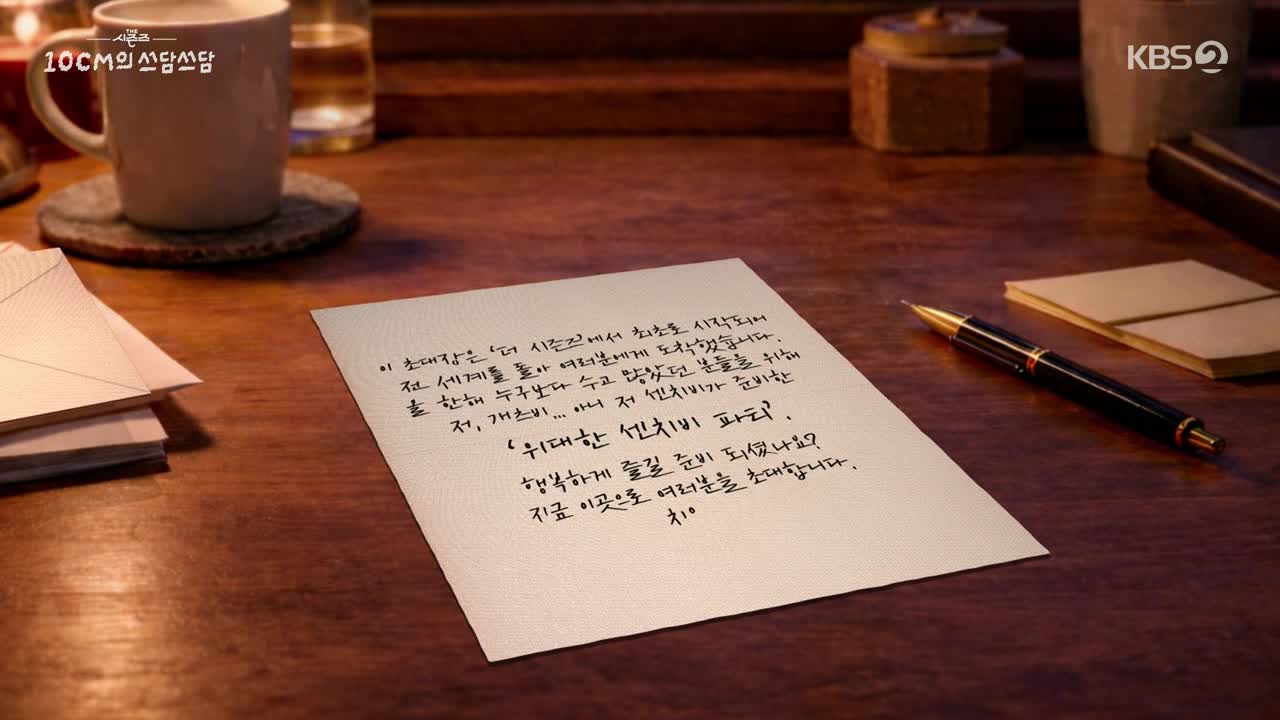 THE
시즌즈
10CM의 쓰담쓰담
KBS2
이 초대장은 '더 시즌즈'에서 최초로 시작되어
전 세계를 돌아 여러분에게 도착했습니다.
올 한해 누구보다 수고 많았던 분들을 위해
저, 개츠비... 아니 저 센치비가 준비한
'위대한 센치비 파티'.
행복하게 즐길 준비 되셨나요?
지금 이곳으로 여러분을 초대합니다.
치이